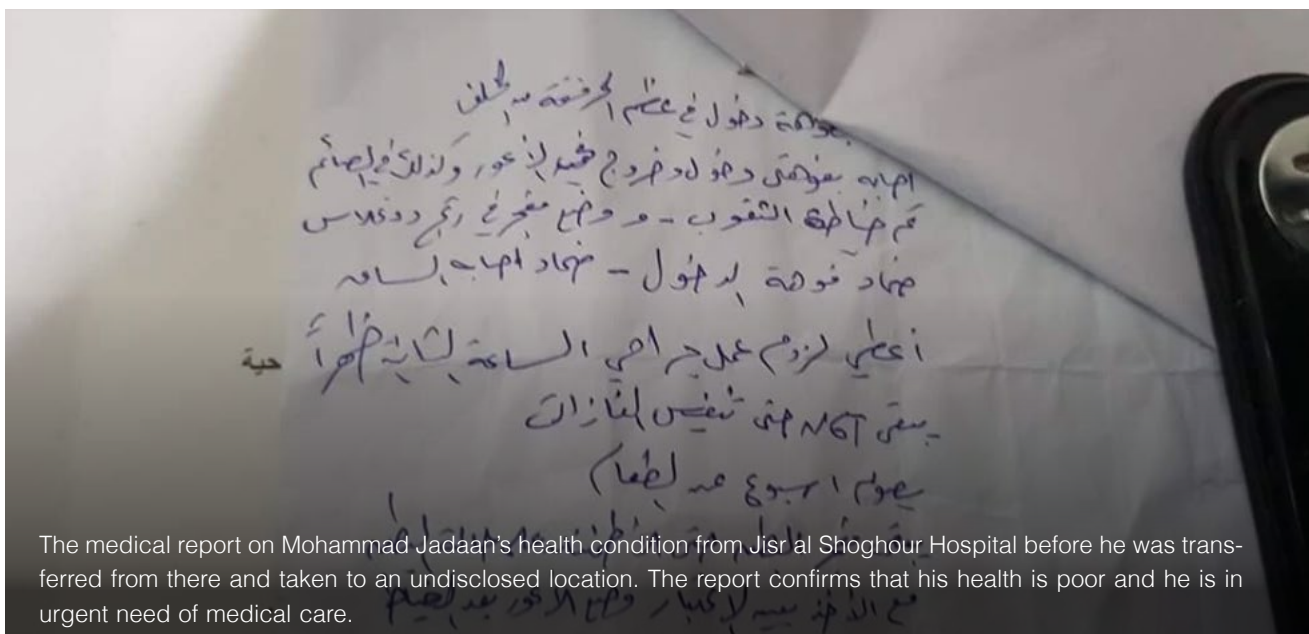 بفوهة دخول في عظم الحرقفة من الخلف
اصابة بفوهتي دخول وخروج في الاعور وكذلك في الصائم
تم خياطة الثقوب - و وضع مفجر في رتج دوغلاس
ضماد فوهة الدخول - ضماد اصابة الساق
أعطي لزوم عمل جراحي الساعة الثانية ظهراً
حية
يبقى حتى تنفيس الغازات
يصوم اسبوع عن الطعام
مع الأخذ بعين الاعتبار وضع الاعور بعد الصيام
The medical report on Mohammad Jadaan's health condition from Jisr al Shoghour Hospital before he was trans-
ferred from there and taken to an undisclosed location. The report confirms that his health is poor and he is in
urgent need of medical care.